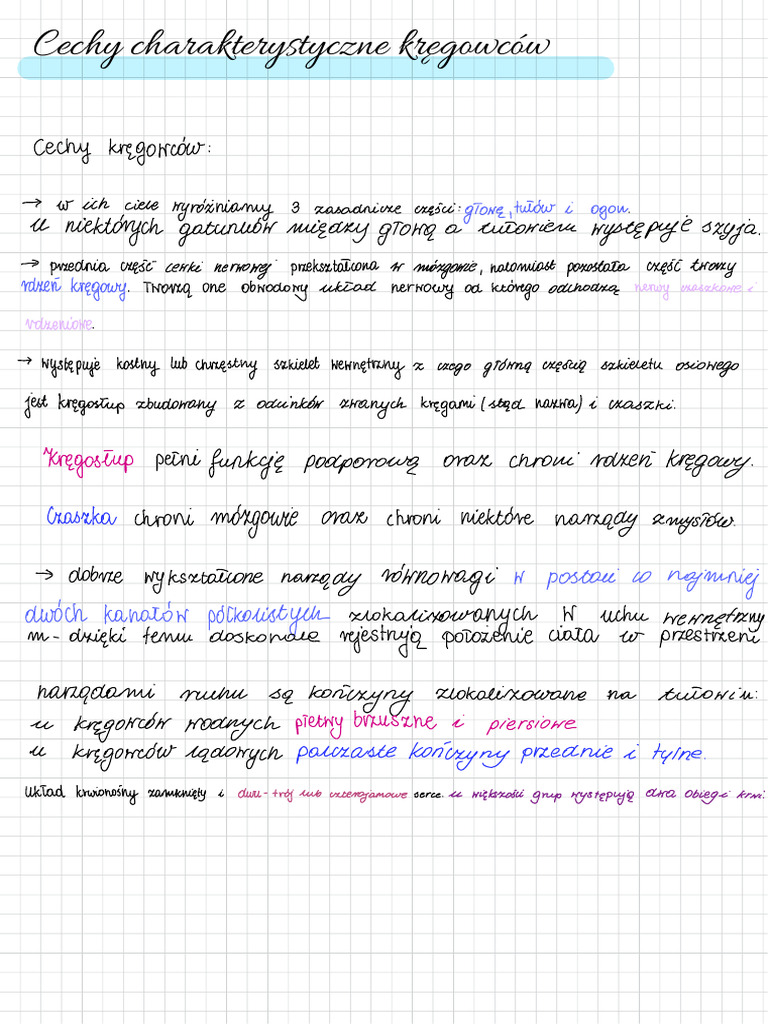 Cechy charakterystyczne kręgowców
Cechy kręgowców:
→ w ich ciele wyróżniamy 3 zasadnicze części: głowę, tułów i ogon.
u niektórych gatunków między głową a tułowiem występuje szyja.
→ przednia część cewki nerwowej przekształcona w mózgowie, natomiast pozostała część tworzy
rdzeń kręgowy. Tworzą one obwodowy układ nerwowy od którego odchodzą nerwy czaszkowe i
rdzeniowe.
→ występuje kostny lub chrzęstny szkielet wewnętrzny z czego główną częścią szkieletu osiowego
jest kręgosłup zbudowany z odcinków zwanych kręgami (stąd nazwa) i czaszki.
Kręgosłup pełni funkcję podporową oraz chroni rdzeń kręgowy.
Czaszka chroni mózgowie oraz chroni niektóre narządy zmysłów.
→ dobrze wykształcone narządy równowagi w postaci co najmniej
dwóch kanałów półkolistych zlokalizowanych w uchu wewnętrzny
m - dzięki temu doskonale rejestrują położenie ciała w przestrzeni
narządami ruchu są kończyny zlokalizowane na tułowiu:
u kręgowców wodnych płetwy brzuszne i piersiowe
u kręgowców lądowych palczaste kończyny przednie i tylne.
Układ krwionośny zamknięty i dwu-trój lub czterojamowe serce. u większości grup występują dwa obiegi krwi.